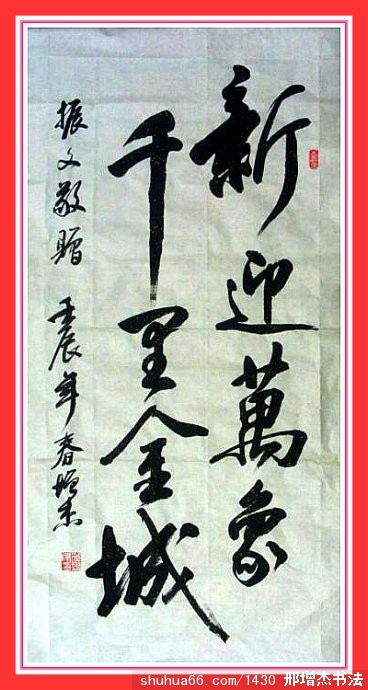 新迎萬象
千里金城
振文敬贈 壬辰年春增杰
shuhua66.com/1430 邢增杰书法